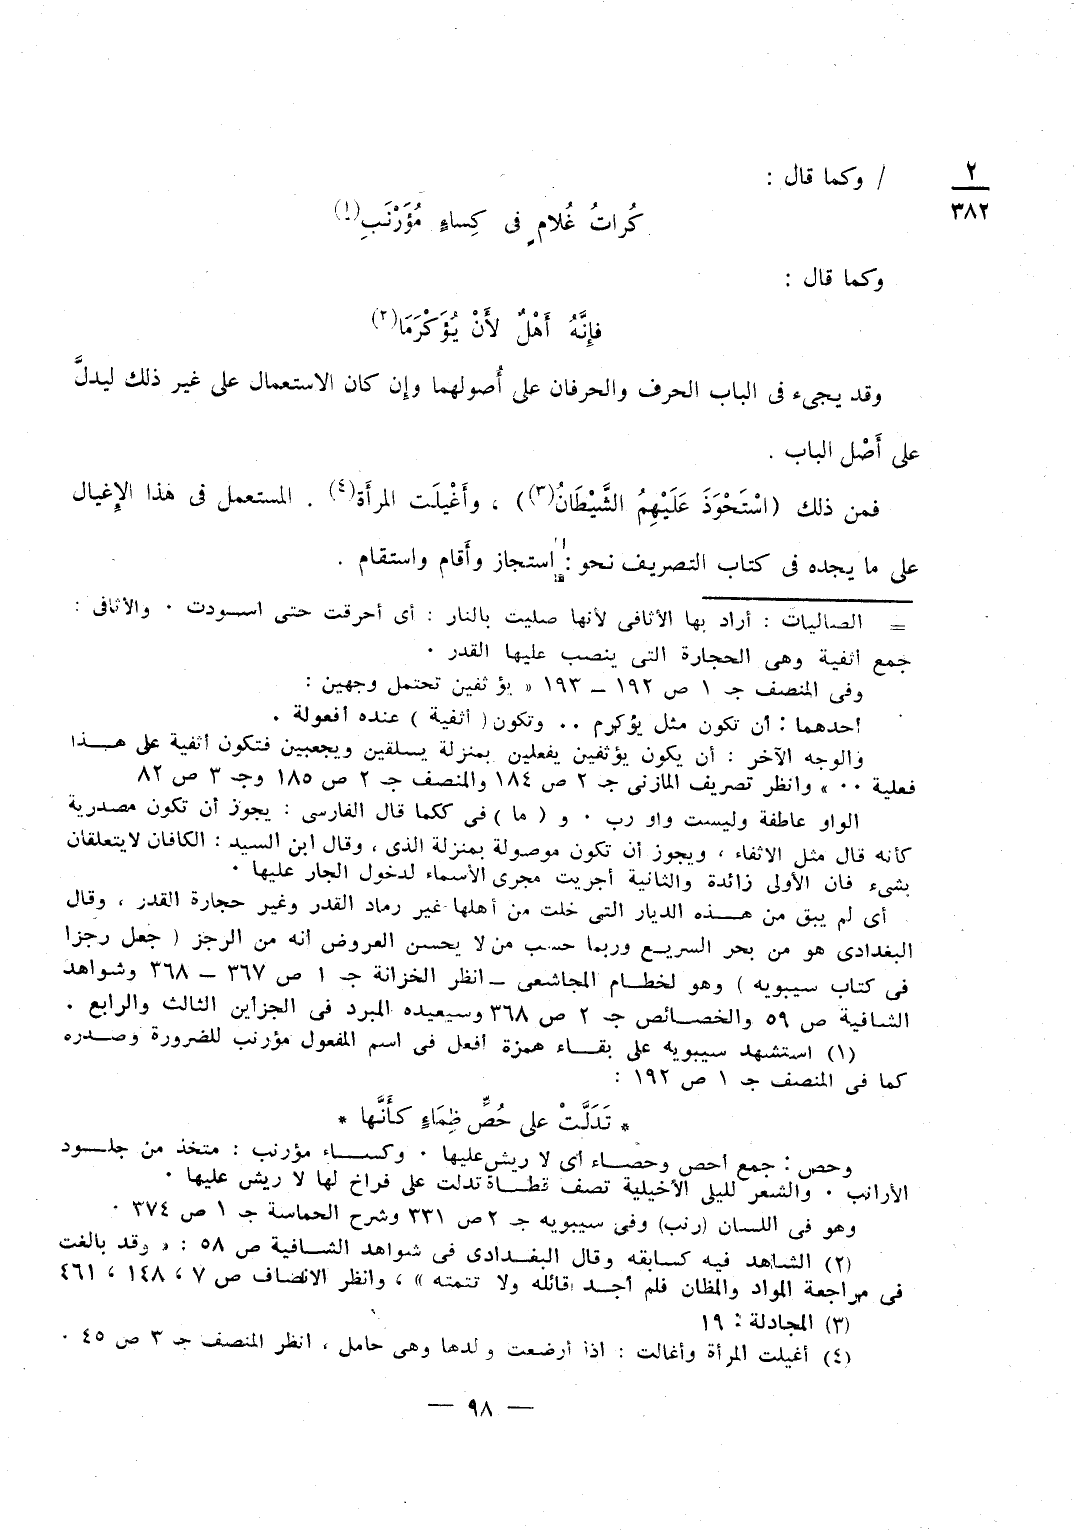 ٢
٣٨٢
/ وكما قال :
كُراتُ غُلامٍ فى كِساءٍ مُؤَرْنَبِ(١)
وكما قال :
فإِنَّهُ أَهْلٌ لأَنْ يُؤَكْرَمَا(٢)
وقد يجىء فى الباب الحرف والحرفان على أُصولهما وإن كان الاستعمال على غير ذلك ليدلَّ
على أَصْل الباب .
فمن ذلك (اسْتَحْوَذَ عَلَيْهِمُ الشَّيْطَانُ(٣)) ، وأَغْيلَت المرأَة(٤) . المستعمل فى هذا الإِغيال
على ما يجده فى كتاب التصريف نحو : استجاز وأَقام واستقام .
= الصاليات : أراد بها الأثافى لأنها صليت بالنار : أى أحرقت حتى اسودت . والأثافى :
جمع أثفية وهى الحجارة التى ينصب عليها القدر .
وفى المنصف جـ ١ ص ١٩٢ – ١٩٣ « يؤثفين تحتمل وجهين :
أحدهما : أن تكون مثل يؤكرم .. وتكون ( أثفية ) عنده أفعولة .
والوجه الآخر : أن يكون يؤثفين يفعلين بمنزلة يسلقين ويجعبين فتكون أثفية على هذا
فعلية .. » وانظر تصريف المازنى جـ ٢ ص ١٨٤ والمنصف جـ ٢ ص ١٨٥ وجـ ٣ ص ٨٢
الواو عاطفة وليست واو رب . و ( ما ) فى ككما قال الفارسى : يجوز أن تكون مصدرية
كأنه قال مثل الاثفاء ، ويجوز أن تكون موصولة بمنزلة الذى ، وقال ابن السيد : الكافان لايتعلقان
بشىء فان الأولى زائدة والثانية أجريت مجرى الأسماء لدخول الجار عليها .
أى لم يبق من هذه الديار التى خلت من أهلها غير رماد القدر وغير حجارة القدر ، وقال
البغدادى هو من بحر السريع وربما حسب من لا يحسن العروض أنه من الرجز ( جعل رجزا
فى كتاب سيبويه ) وهو لخطام المجاشعى – انظر الخزانة جـ ١ ص ٣٦٧ – ٣٦٨ وشواهد
الشافية ص ٥٩ والخصائص جـ ٢ ص ٣٦٨ وسيعيده المبرد فى الجزأين الثالث والرابع .
(١) استشهد سيبويه على بقاء همزة أفعل فى اسم المفعول مؤرنب للضرورة وصدره
كما فى المنصف جـ ١ ص ١٩٢ :
* تَدَلَّتْ على حُصٍّ ظِمَاءٍ كأَنَّها *
وحص : جمع أحص وحصاء أى لا ريش عليها . وكساء مؤرنب : متخذ من جلود
الأرانب . والشعر لليلى الأخيلية تصف قطاة تدلت على فراخ لها لا ريش عليها .
وهو فى اللسان (رنب) وفى سيبويه جـ ٢ ص ٣٣١ وشرح الحماسة جـ ١ ص ٣٧٤ .
(٢) الشاهد فيه كسابقه وقال البغدادى فى شواهد الشافية ص ٥٨ : « وقد بالغت
فى مراجعة المواد والمظان فلم أجد قائله ولا تتمته » ، وانظر الانصاف ص ٧ ، ١٤٨ ، ٤٦١
(٣) المجادلة : ١٩
(٤) أغيلت المرأة وأغالت : اذا أرضعت ولدها وهى حامل ، انظر المنصف جـ ٣ ص ٤٥ .
— ٩٨ —